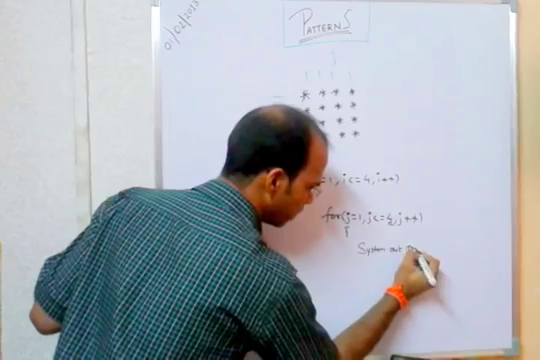 01/02/2013
PATTERNS
* * * *
* * *
* * *
* *
=1, i<=4, i++)
for(j=1, j<=4, j++)
{
System out